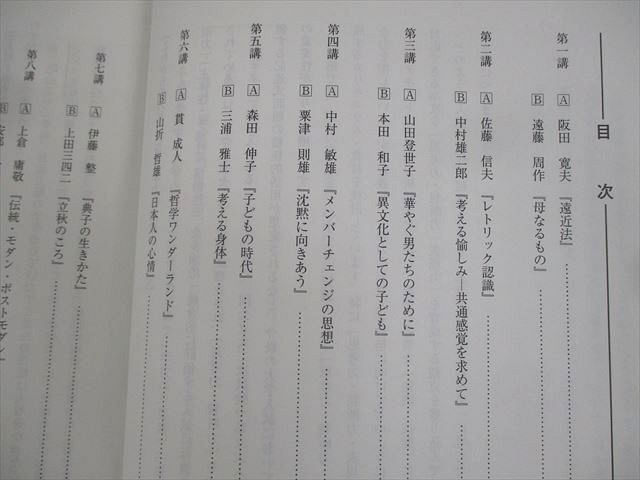 目次
第一講 A 阪田 寛夫 『遠近法』
B 遠藤 周作 『母なるもの』
第二講 A 佐藤 信夫 『レトリック認識』
B 中村雄二郎 『考える愉しみ―共通感覚を求めて』
第三講 A 山田登世子 『華やぐ男たちのために』
B 本田 和子 『異文化としての子ども』
第四講 A 中村 敏雄 『メンバーチェンジの思想』
B 粟津 則雄 『沈黙に向きあう』
第五講 A 森田 伸子 『子どもの時代』
B 三浦 雅士 『考える身体』
第六講 A 貫 成人 『哲学ワンダーランド』
B 山折 哲雄 『日本人の心情』
第七講 A 伊藤 整 『典子の生きかた』
B 上田三四二 『立秋のころ』
第八講 A 上倉 庸敬 『伝統・モダン・ポストモダン』
B